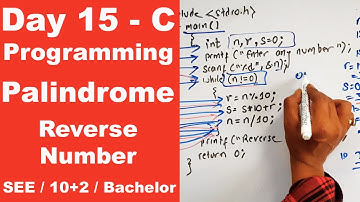 Day 15 - C
Programming
Palindrome
Reverse
Number
SEE / 10+2 / Bachelor
clude <stdio.h>
main()
{
int n,r,s=0;
printf("Enter any number n);
scanf("%d",&n);
while (n!=0)
{
r=n%10;
s=s*10+r;
n=n/10;
}
printf("Reverse
return 0;
}